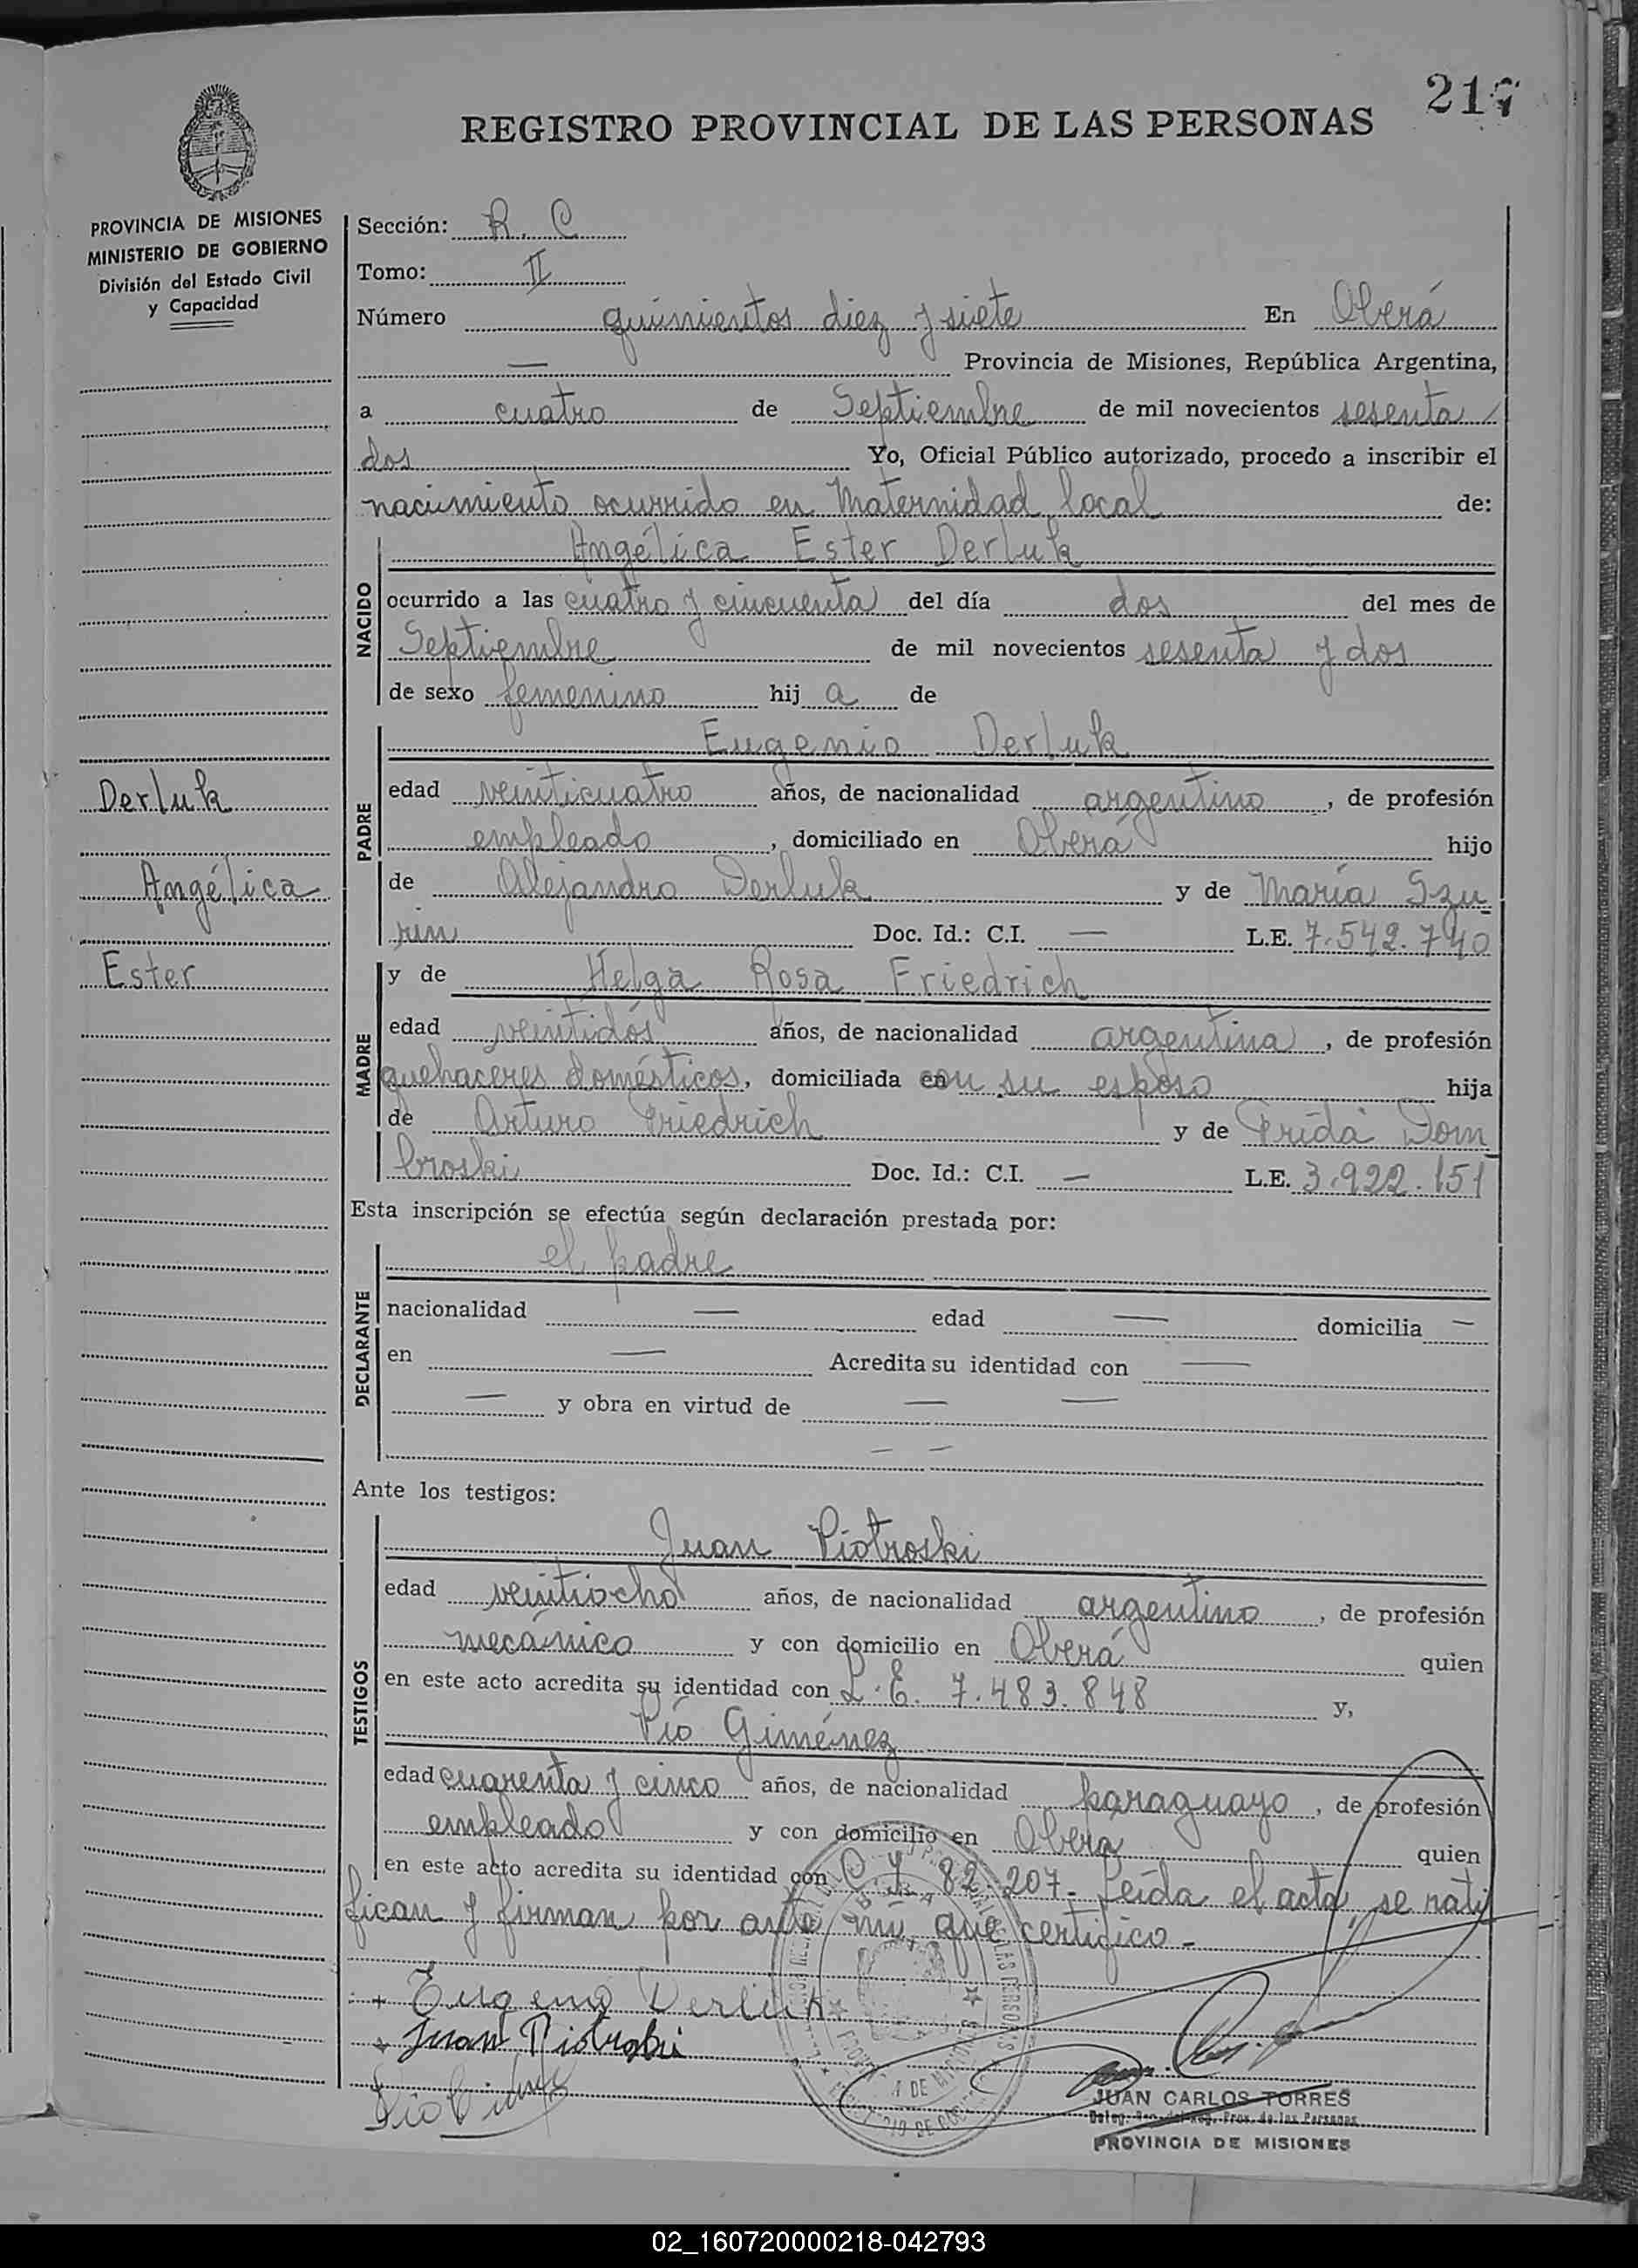 217
REGISTRO PROVINCIAL DE LAS PERSONAS
PROVINCIA DE MISIONES
MINISTERIO DE GOBIERNO
División del Estado Civil
y Capacidad
Sección: R. C
Tomo: II
Número quinientos diez y siete En Oberá
— Provincia de Misiones, República Argentina,
a cuatro de Septiembre de mil novecientos sesenta /
dos Yo, Oficial Público autorizado, procedo a inscribir el
nacimiento ocurrido en Maternidad local de:
NACIDO
Angélica Ester Derluk
ocurrido a las cuatro y cincuenta del día dos del mes de
Septiembre de mil novecientos sesenta y dos
de sexo femenino hij a de
PADRE
Eugenio Derluk
edad veinticuatro años, de nacionalidad argentino, de profesión
empleado, domiciliado en Oberá hijo
de Alejandro Derluk y de María Szu
rin Doc. Id.: C.I. — L.E. 7.542.740
Derluk
Angélica
Ester
MADRE
y de Helga Rosa Friedrich
edad veintidós años, de nacionalidad argentina, de profesión
quehaceres domésticos, domiciliada con su esposo hija
de Arturo Friedrich y de Frida Dom
broski Doc. Id.: C.I. — L.E. 3.922.151
Esta inscripción se efectúa según declaración prestada por:
DECLARANTE
el padre
nacionalidad — edad — domicilia —
en — Acredita su identidad con —
— y obra en virtud de — —
— —
Ante los testigos:
TESTIGOS
Juan Piotroski
edad veintiocho años, de nacionalidad argentino, de profesión
mecánico y con domicilio en Oberá quien
en este acto acredita su identidad con L.E. 7.483.848 y,
Pío Giménez
edad cuarenta y cinco años, de nacionalidad paraguayo, de profesión
empleado y con domicilio en Oberá quien
en este acto acredita su identidad con C.I. 82.207- Leída el acta, se rati
fican y firman por ante mí, que certifico -
+ Eugenio Derluk
+ Juan Piotroski
JUAN CARLOS TORRES
PROVINCIA DE MISIONES
02_160720000218-042793